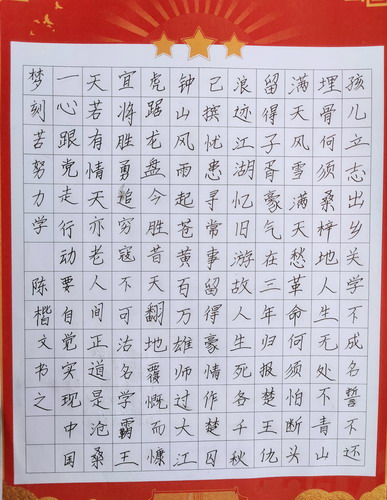 孩儿立志出乡关学不成名誓不还
埋骨何须桑梓地人生无处不青山
满天风雪满天愁革命何须怕断头
留得子胥豪气在三年归报楚王仇
浪迹江湖忆旧游故人生死各千秋
已摈忧患寻常事留得豪情作楚囚
钟山风雨起苍黄百万雄师过大江
虎踞龙盘今胜昔天翻地覆慨而慷
宜将胜勇追穷寇不可沽名学霸王
天若有情天亦老人间正道是沧桑
一心跟党走行动要自觉实现中国
梦刻苦努力学 陈楷文书之